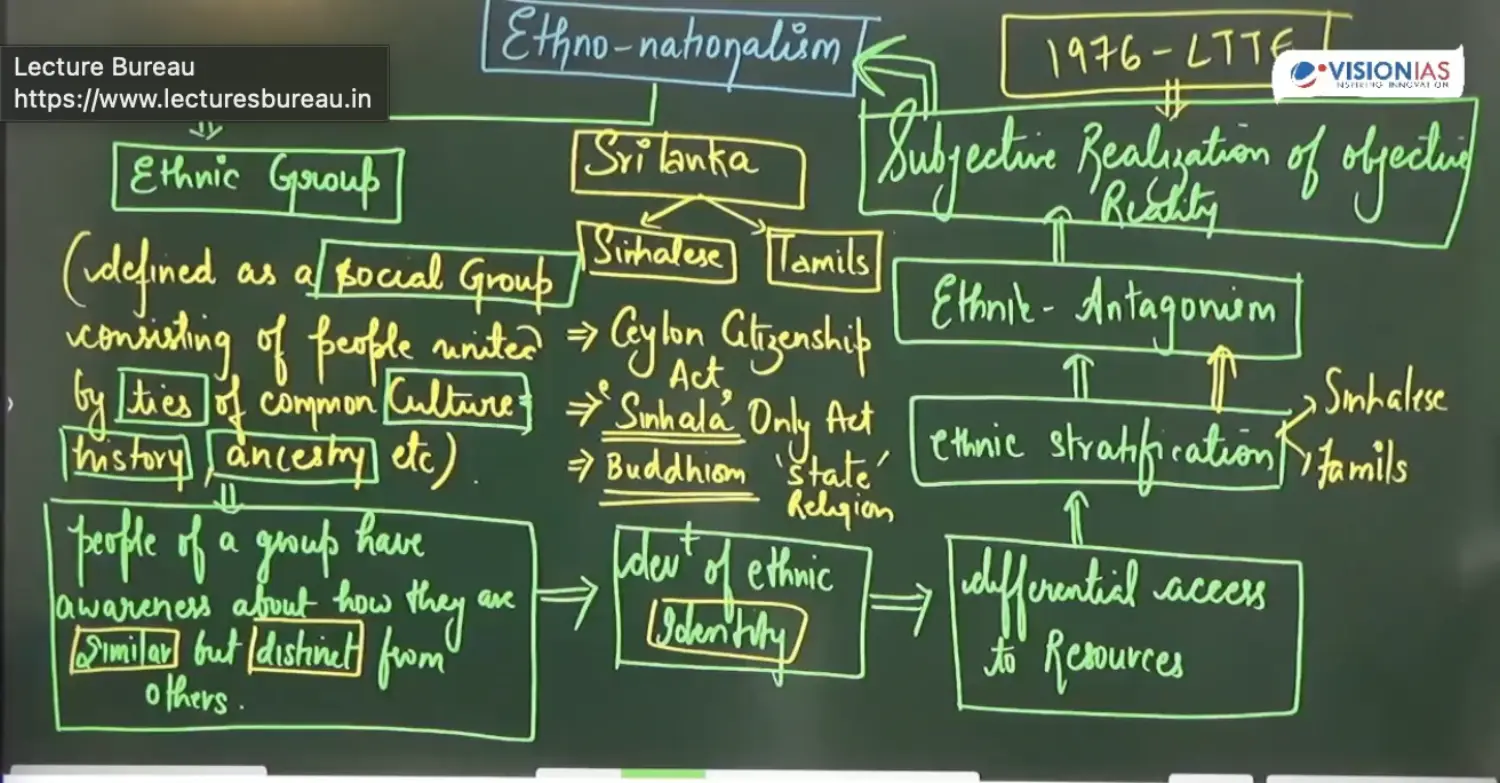 Lecture Bureau
https://www.lecturesbureau.in
Ethno-nationalism
1976-LTTE
VISIONIAS
INSPIRING INNOVATION
Ethnic Group
(defined as a social Group
consisting of people united
by ties of common Culture
history, ancestry etc).
people of a group have
awareness about how they are
Similar but distinct from
others.
Sri lanka
Sinhalese
Tamils
⇒ Ceylon Citizenship
Act
⇒ 'Sinhala' Only Act
⇒ Buddhism 'state'
Religion
dev⁺ of ethnic
Identity
differential access
to Resources
ethnic stratification
Sinhalese
Tamils
Ethnic-Antagonism
Subjective Realization of objective
Reality